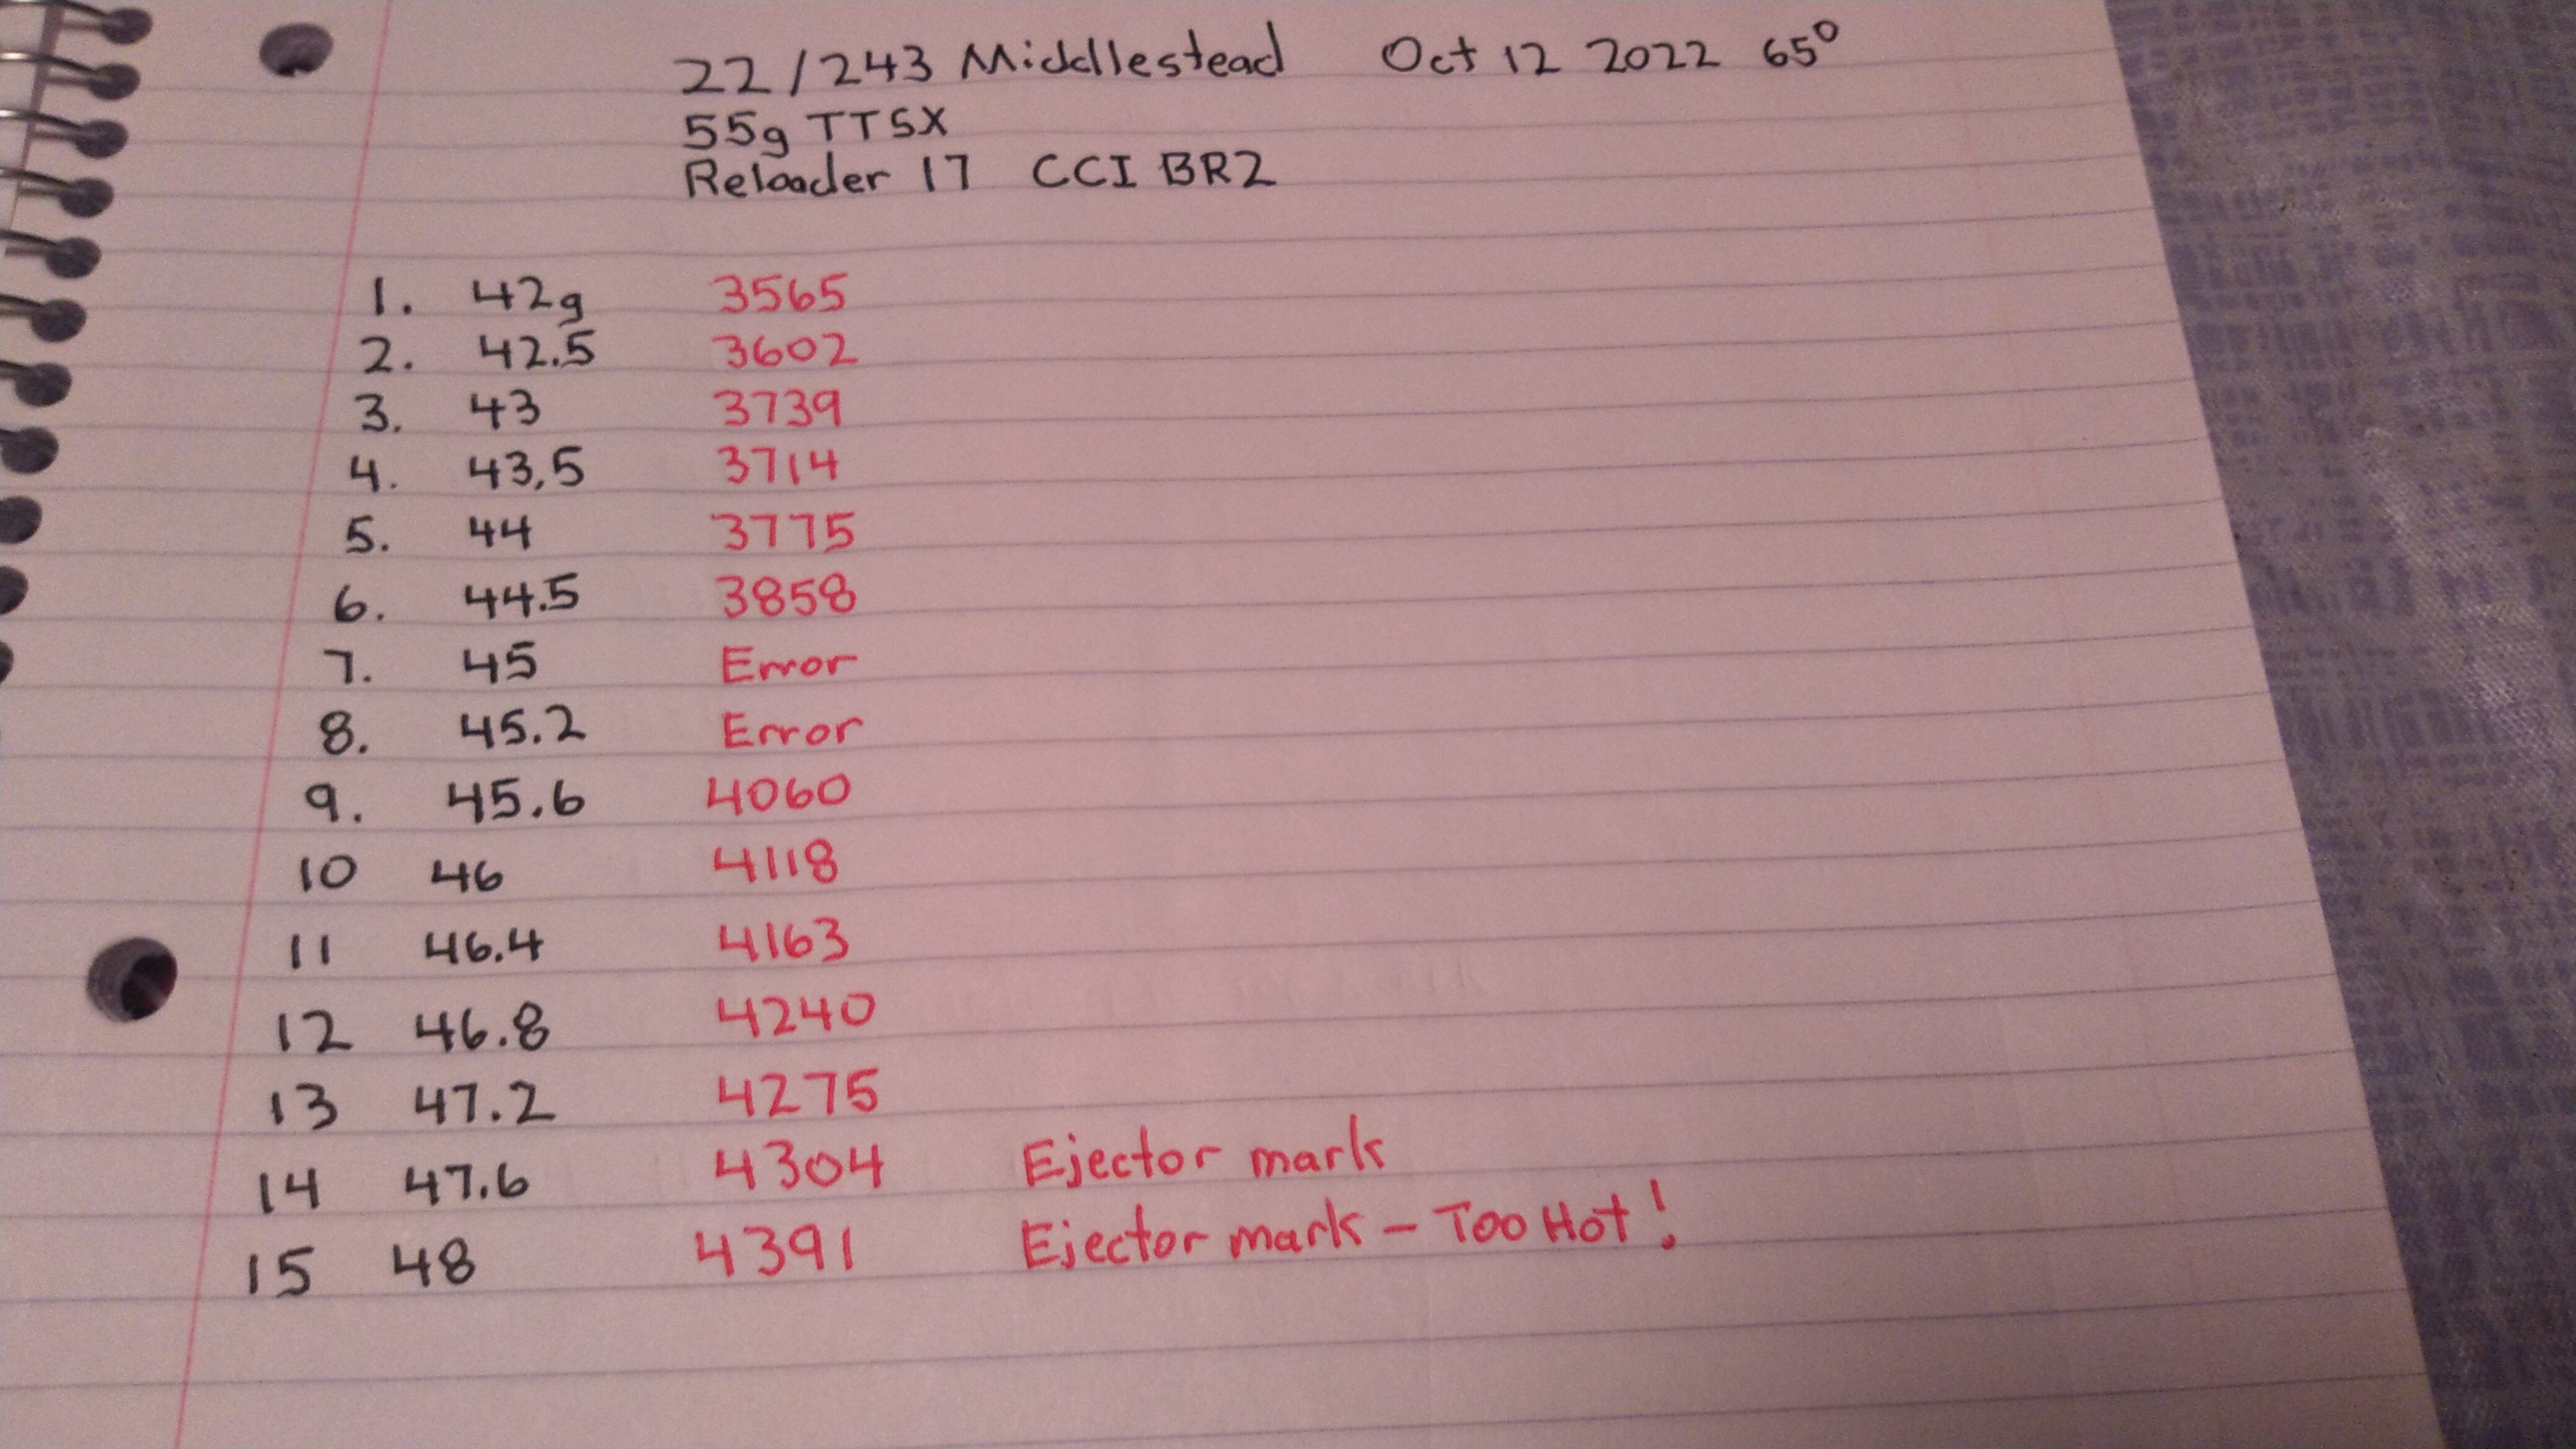 22/243 Middlestead Oct 12 2022 65°
55g TTSX
Reloader 17 CCI BR2
1. 42g 3565
2. 42.5 3602
3. 43 3739
4. 43,5 3714
5. 44 3775
6. 44.5 3858
7. 45 Error
8. 45.2 Error
9. 45.6 4060
10 46 4118
11 46.4 4163
12 46.8 4240
13 47.2 4275
14 47.6 4304 Ejector mark
15 48 4391 Ejector mark - Too Hot!